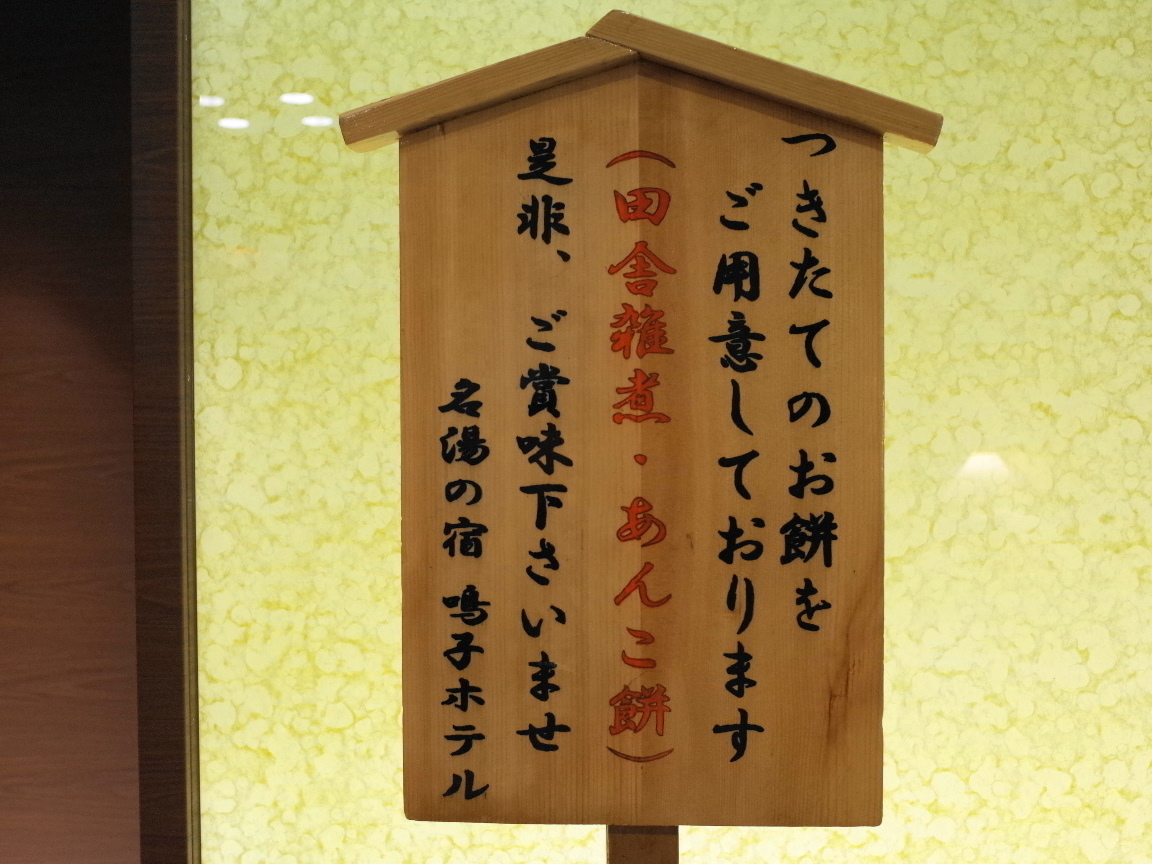 つきたてのお餅を
ご用意しております
（田舎雑煮・あんこ餅）
是非、ご賞味下さいませ
名湯の宿 鳴子ホテル